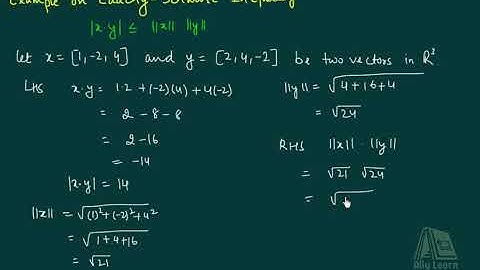 Example on Cauchy-Schwarz Inequality
|x·y| ≤ ||x|| ||y||
let x = [1, -2, 4] and y = [2, 4, -2] be two vectors in R³
LHS x·y = 1·2 + (-2)(4) + 4(-2)
= 2 - 8 - 8
= 2 - 16
= -14
|x·y| = 14
||x|| = √(1)² + (-2)² + 4²
= √1 + 4 + 16
= √21
||y|| = √4 + 16 + 4
= √24
RHS ||x|| · ||y||
= √21 √24
= √
Olly Learn